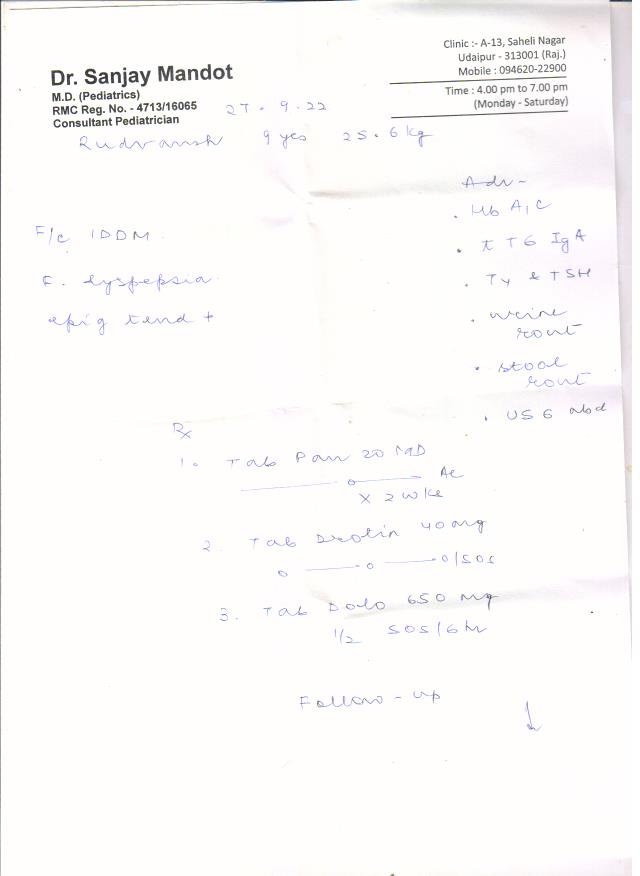 Clinic :- A-13, Saheli Nagar
Udaipur - 313001 (Raj.)
Mobile : 094620-22900
Time : 4.00 pm to 7.00 pm
(Monday - Saturday)
Dr. Sanjay Mandot
M.D. (Pediatrics)
RMC Reg. No. - 4713/16065
Consultant Pediatrician
27.9.22
Rudvansh 9 yes 25.6 kg
Adv -
. Hb A1C
. t TG IgA
. T4 & TSH
. urine
rout
. stool
rout
. USG abd
F/c IDDM.
F. dyspepsia
epig tend +
Rx
1. Tab Pan 20 mg
x 2 wk
2. Tab Drotin 40 mg
o — o — o/sos
3. Tab Dolo 650 mg
1/2 sos/6 hr
Follow-up